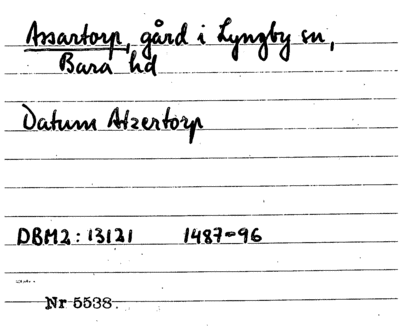 Assartorp, gård i Lyngby sn,
Bara hd
Datum Atzertorp
DBM2: 13121 1487-96
Nr 5538.